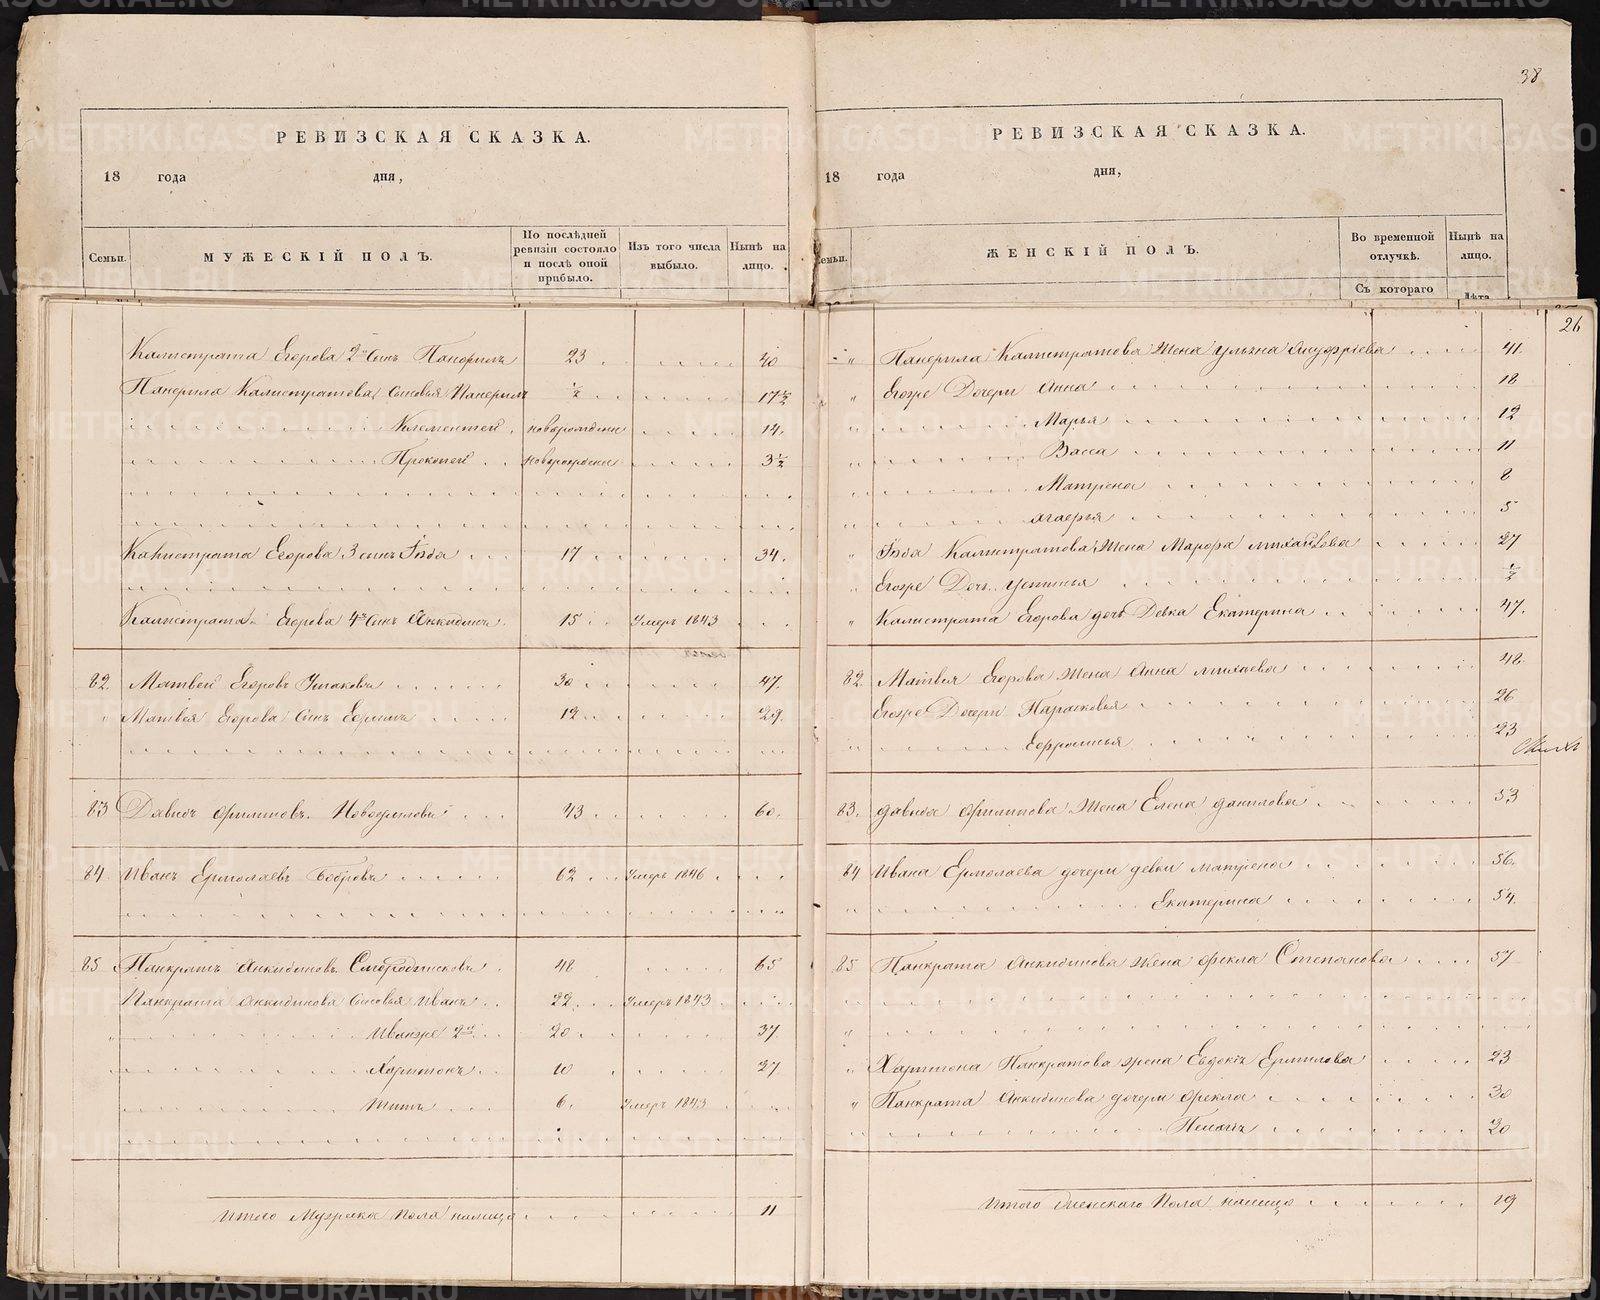 38
РЕВИЗСКАЯ СКАЗКА.
18 года дня,
Семьи.
МУЖЕСКІЙ ПОЛЪ.
По послѣдней ревизіи состояло и послѣ оной прибыло.
Изъ того числа выбыло.
Нынѣ на лицо.
Калистрата Егорова 2й Сынъ Панфилъ 23 40
Панфила Калистратова Сыновья Панфилъ ½ 17½
Климентей новорожденъ 14.
Прокопей новорожденъ 3½
Калистрата Егорова 3 сынъ 17 34.
Калистрата Егорова 4й Сынъ Анкидинъ 15 Умеръ 1843
82. Матвей Егоровъ 30 47.
Матвея Егорова Сынъ Ефимъ 12 29.
83 Давидъ Филиповъ 43 60.
84. Иванъ Ермолаевъ Бобровъ 62 Умеръ 1846
85 Панкратъ Анкидиновъ 48 65
Панкрата Анкидинова Сыновья Иванъ 22 Умеръ 1843
Иванже 2й 20 37.
Харитонъ 10 27
Титъ 6. Умеръ 1843
Итого Мужеска Пола налицо 11
РЕВИЗСКАЯ СКАЗКА.
18 года дня,
Семьи.
ЖЕНСКІЙ ПОЛЪ.
Во временной отлучкѣ.
Нынѣ на лицо.
Съ котораго
Лѣта
26
Панфила Калистратова Жена Ульяна Ануфріева 41.
Егоже Дочери Анна 18
Марья 12
Васса 11
Матрена 8
Агафья 5
Калистратова Жена Марфа Михайлова 27
Егоже Дочь Устинья ½
Калистрата Егорова дочь Девка Екатерина 47.
82. Матвея Егорова Жена Анна 48.
Егоже Дочери Парасковья 26
Ефросинья 23
83. Давида Филипова Жена Елена Данилова 53
84 Ивана Ермолаева дочери девки Матрена 56.
Екатерина 54.
85 Панкрата Анкидинова жена Фекла Степанова 57
Харитона Панкратова жена Евдокія Ермилова 23
Панкрата Анкидинова дочери Фекла 30
Пелагія 20
Итого Женскаго Пола налицо 19
METRIKI.GASO-URAL.RU